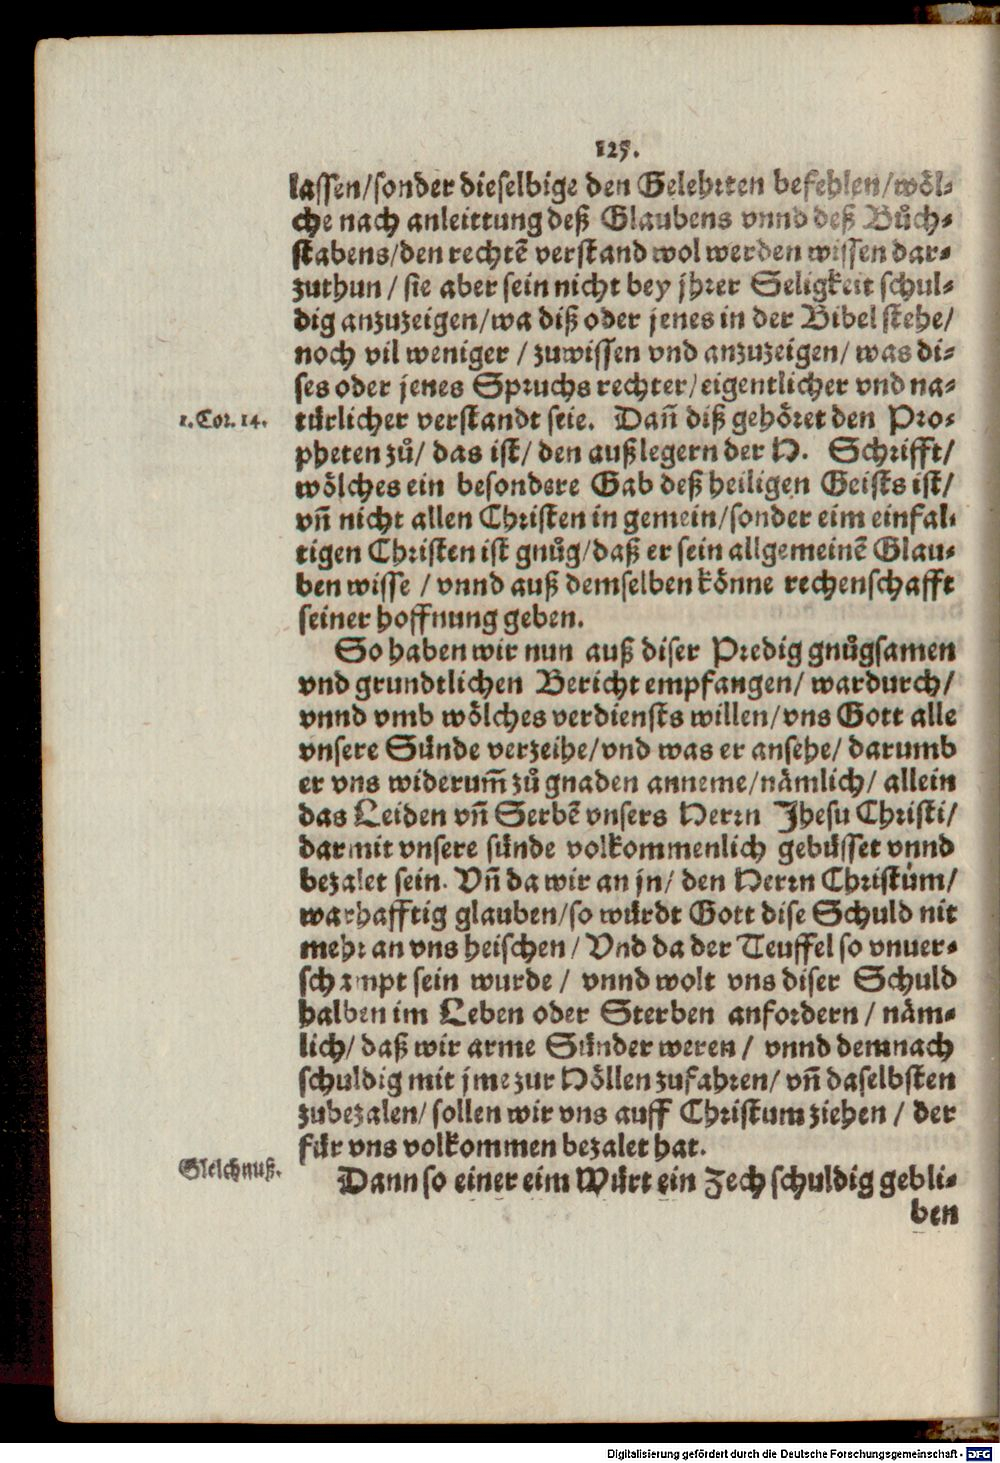 125.
lassen/sonder dieselbige den Gelehrten befehlen/wöl-
che nach anleittung deß Glaubens vnnd deß Bůch-
stabens/den rechtẽ verstand wol werden wissen dar-
zuthun/ sie aber sein nicht bey jhrer Seligkeit schul-
dig anzuzeigen/wa diß oder jenes in der Bibel stehe/
noch vil weniger / zuwissen vnd anzuzeigen/ was di-
ses oder jenes Spruchs rechter/eigentlicher vnd na-
1. Cor. 14.
türlicher verstandt seie. Dañ diß gehöret den Pro-
pheten zů/ das ist/ den außlegern der H. Schrifft/
wölches ein besondere Gab deß heiligen Geists ist/
vñ nicht allen Christen in gemein/sonder eim einfal-
tigen Christen ist gnůg/daß er sein allgemeinẽ Glau-
ben wisse / vnnd auß demselben könne rechenschafft
seiner hoffnung geben.
So haben wir nun auß diser Predig gnůgsamen
vnd grundtlichen Bericht empfangen/ wardurch/
vnnd vmb wölches verdiensts willen/vns Gott alle
vnsere Sünde verzeihe/vnd was er ansehe/ darumb
er vns widerum̃ zů gnaden anneme/nämlich/ allein
das Leiden vñ Serbẽ vnsers Herrn Jhesu Christi/
darmit vnsere sünde volkommenlich gebüsset vnnd
bezalet sein. Vñ da wir an jn/ den Herrn Christum/
warhafftig glauben/so würdt Gott dise Schuld nit
mehr an vns heischen/ Vnd da der Teuffel so vnuer-
schampt sein wurde / vnnd wolt vns diser Schuld
halben im Leben oder Sterben anfordern/ näm-
lich/ daß wir arme Sünder weren / vnnd demnach
schuldig mit jme zur Höllen zufahren/ vñ daselbsten
zubezalen/ sollen wir vns auff Christum ziehen / der
für vns volkommen bezalet hat.
Gleichnuß.
Dann so einer eim Würt ein Zech schuldig gebli-
ben
Digitalisierung gefördert durch die Deutsche Forschungsgemeinschaft - DFG